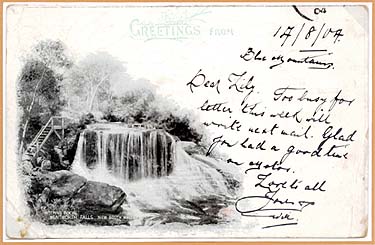 GREETINGS FROM
17/8/04
Blue Mountains,
Dear Lily. Too busy for
letter this week will
write next mail. Glad
you had a good time
on
Love to all
WENTWORTH FALLS. NEW SOUTH WALES